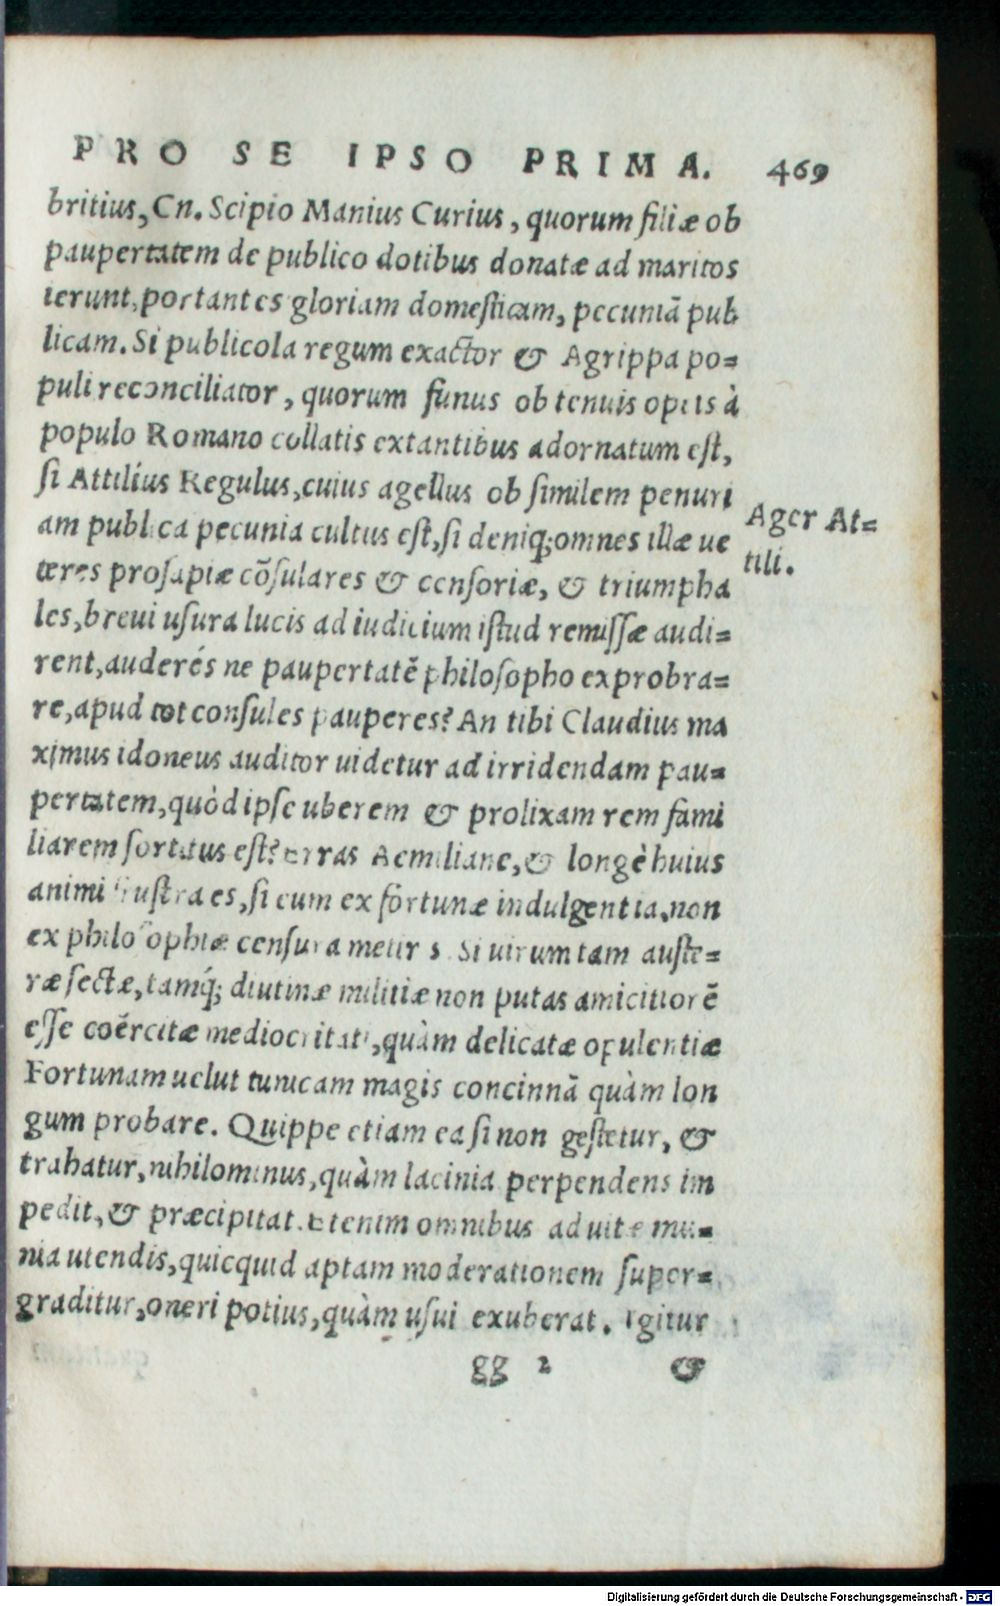 PRO SE IPSO PRIMA. 469
britius, Cn. Scipio Manius Curius, quorum filiæ ob
paupertatem de publico dotibus donatæ ad maritos
ierunt, portantes gloriam domesticam, pecuniā pub
licam. Si publicola regum exactor & Agrippa po=
puli reconciliator, quorum funus ob tenuis opes à
populo Romano collatis extantibus adornatum est,
si Attilius Regulus, cuius agellus ob similem penuri
am publica pecunia cultus est, si deniq; omnes illæ ue
teres prosapiæ cōsulares & censoriæ, & triumpha
les, breui usura lucis ad iudicium istud remissæ audi=
rent, auderés ne paupertatē philosopho exprobra=
re, apud tot consules pauperes? An tibi Claudius ma
ximus idoneus auditor uidetur ad irridendam pau=
pertatem, quòd ipse uberem & prolixam rem fami
liarem sortitus est? erras Aemiliane, & longè huius
animi frustra es, si eum ex fortunæ indulgentia, non
ex philosophiæ censura metiris. Si uirum tam auste=
ræ sectæ, tamq́; diutinæ militiæ non putas amicitiorē
esse coërcitæ mediocritati, quàm delicatæ opulentiæ
Fortunam uelut tunicam magis concinnā quàm lon
gum probare. Quippe etiam ea si non gestetur, &
trahatur, nihilominus, quàm lacinia perpendens im
pedit, & præcipitat. Etenim omnibus ad uitæ mu=
nia utendis, quicquid aptam moderationem super=
graditur, oneri potius, quàm usui exuberat. Igitur
gg 2 &
Ager At=
tili.
Digitalisierung gefördert durch die Deutsche Forschungsgemeinschaft - DFG